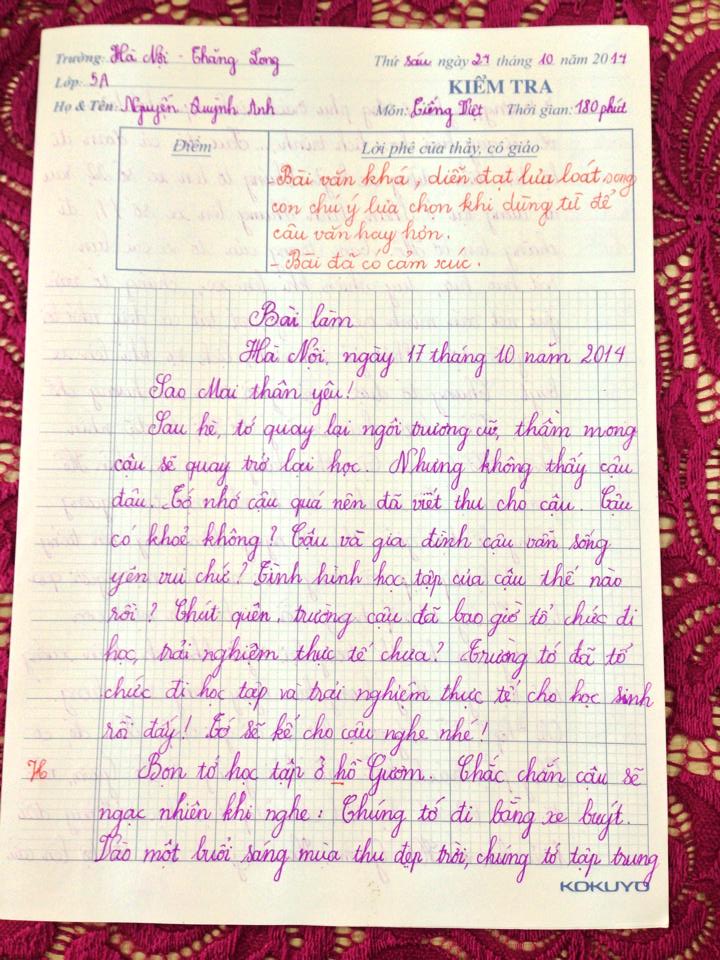 Trường: Hà Nội - Thăng Long Thứ sáu ngày 24 tháng 10 năm 2014
Lớp: 5A KIỂM TRA
Họ & Tên: Nguyễn Quỳnh Anh Môn: Tiếng Việt Thời gian: 180 phút
Điểm Lời phê của thầy, cô giáo
- Bài văn khá, diễn đạt lưu loát song
con chú ý lựa chọn khi dùng từ để
câu văn hay hơn.
- Bài đã có cảm xúc.
Bài làm
Hà Nội, ngày 17 tháng 10 năm 2014
Sao Mai thân yêu!
Sau hè, tớ quay lại ngôi trường cũ, thầm mong
cậu sẽ quay trở lại học. Nhưng không thấy cậu
đâu. Tớ nhớ cậu quá nên đã viết thư cho cậu. Cậu
có khoẻ không? Cậu và gia đình cậu vẫn sống
yên vui chứ? Tình hình học tập của cậu thế nào
rồi? Chút quên, trường cậu đã bao giờ tổ chức đi
học, trải nghiệm thực tế chưa? Trường tớ đã tổ
chức đi học tập và trải nghiệm thực tế cho học sinh
rồi đấy! Tớ sẽ kể cho cậu nghe nhé!
H Bọn tớ học tập ở hồ Gươm. Chắc chắn cậu sẽ
ngạc nhiên khi nghe: Chúng tớ đi bằng xe buýt.
Vào một buổi sáng mùa thu đẹp trời, chúng tớ tập trung
KOKUYO